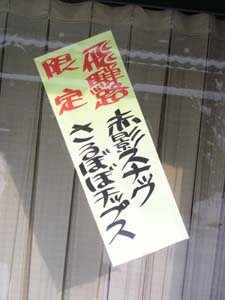 飛騨路
限定
赤影スナック
さるぼぼチップス